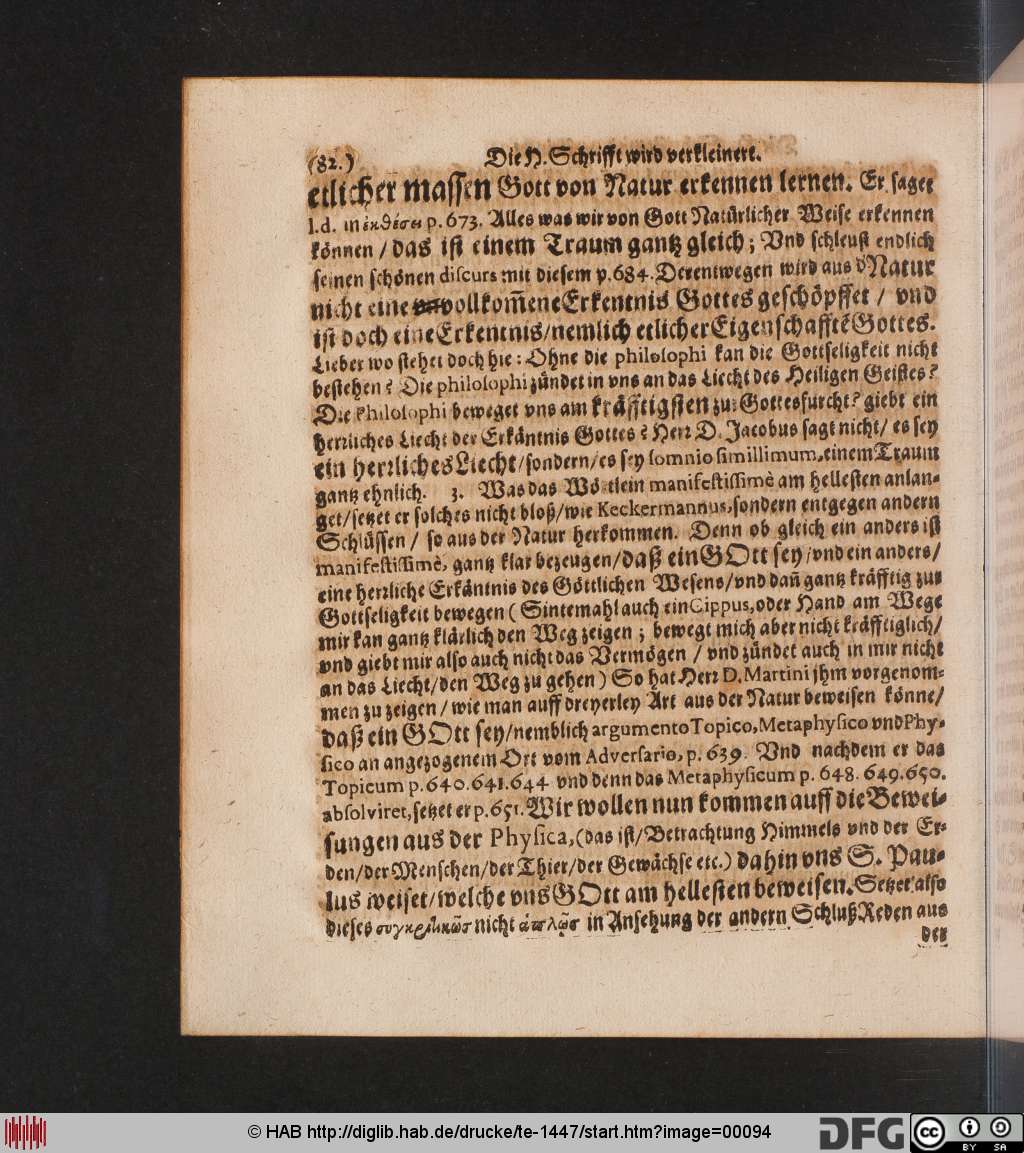 (82.) Die H. Schrifft wird verkleinert.
etlicher massen Gott von Natur erkennen lernen. Er saget
l.d. in ἐκθέσει p. 673. Alles was wir von Gott Natürlicher Weise erkennen
können / das ist einem Traum gantz gleich; Vnd schleust endlich
seinen schönen discurs mit diesem p. 684. Derentwegen wird aus d' Natur
nicht eine vollkom̃ene Erkentnis Gottes geschöpffet / vnd
ist doch eine Erkentnis/nemlich etlicher Eigenschafftẽ Gottes.
Lieber wo stehet doch hie: Ohne die philosophi kan die Gottseligkeit nicht
bestehen? Die philosophi zündet in vns an das Liecht des Heiligen Geistes?
Die Philosophi beweget vns am kräfftigsten zur Gottesfurcht? giebt ein
herrliches Liecht der Erkäntnis Gottes? Herr D. Jacobus sagt nicht/ es sey
ein herrliches Liecht/sondern/es sey somnio simillimum, einem Traum
gantz ehnlich. 3. Was das Wörtlein manifestissimè am hellesten anlan-
get/setzet er solches nicht bloß/wie Keckermannus,sondern entgegen andern
Schlüssen / so aus der Natur herkommen. Denn ob gleich ein anders ist
manifestissimè, gantz klar bezeugen/daß ein GOtt sey/vnd ein anders/
eine herrliche Erkäntnis des Göttlichen Wesens/vnd dañ gantz kräfftig zur
Gottseligkeit bewegen (Sintemahl auch ein Cippus,oder Hand am Wege
mir kan gantz klärlich den Weg zeigen; bewegt mich aber nicht kräfftiglich/
vnd giebt mir also auch nicht das Vermögen / vnd zündet auch in mir nicht
an das Liecht/den Weg zu gehen) So hat Herr D. Martini jhm vorgenom-
men zu zeigen / wie man auff dreyerley Art aus der Natur beweisen könne/
daß ein GOtt sey/nemblich argumento Topico, Metaphysico vnd Phy-
sico an angezogenem Ort vom Adversario, p. 639. Vnd nachdem er das
Topicum p. 640. 641. 644 vnd denn das Metaphysicum p. 648. 649. 650.
absolviret, setzet er p. 651. Wir wollen nun kommen auff die Bewei-
sungen aus der Physica, (das ist/Betrachtung Himmels vnd der Er-
den/der Menschen/der Thier/der Gewächse etc.) dahin vns S. Pau-
lus weiset/welche vns GOtt am hellesten beweisen. Setzet also
dieses συγκριτικῶσ nicht ἁπλῶσ in Ansehung der andern Schluß Reden aus
der
© HAB http://diglib.hab.de/drucke/te-1447/start.htm?image=00094
DFG
cc BY SA